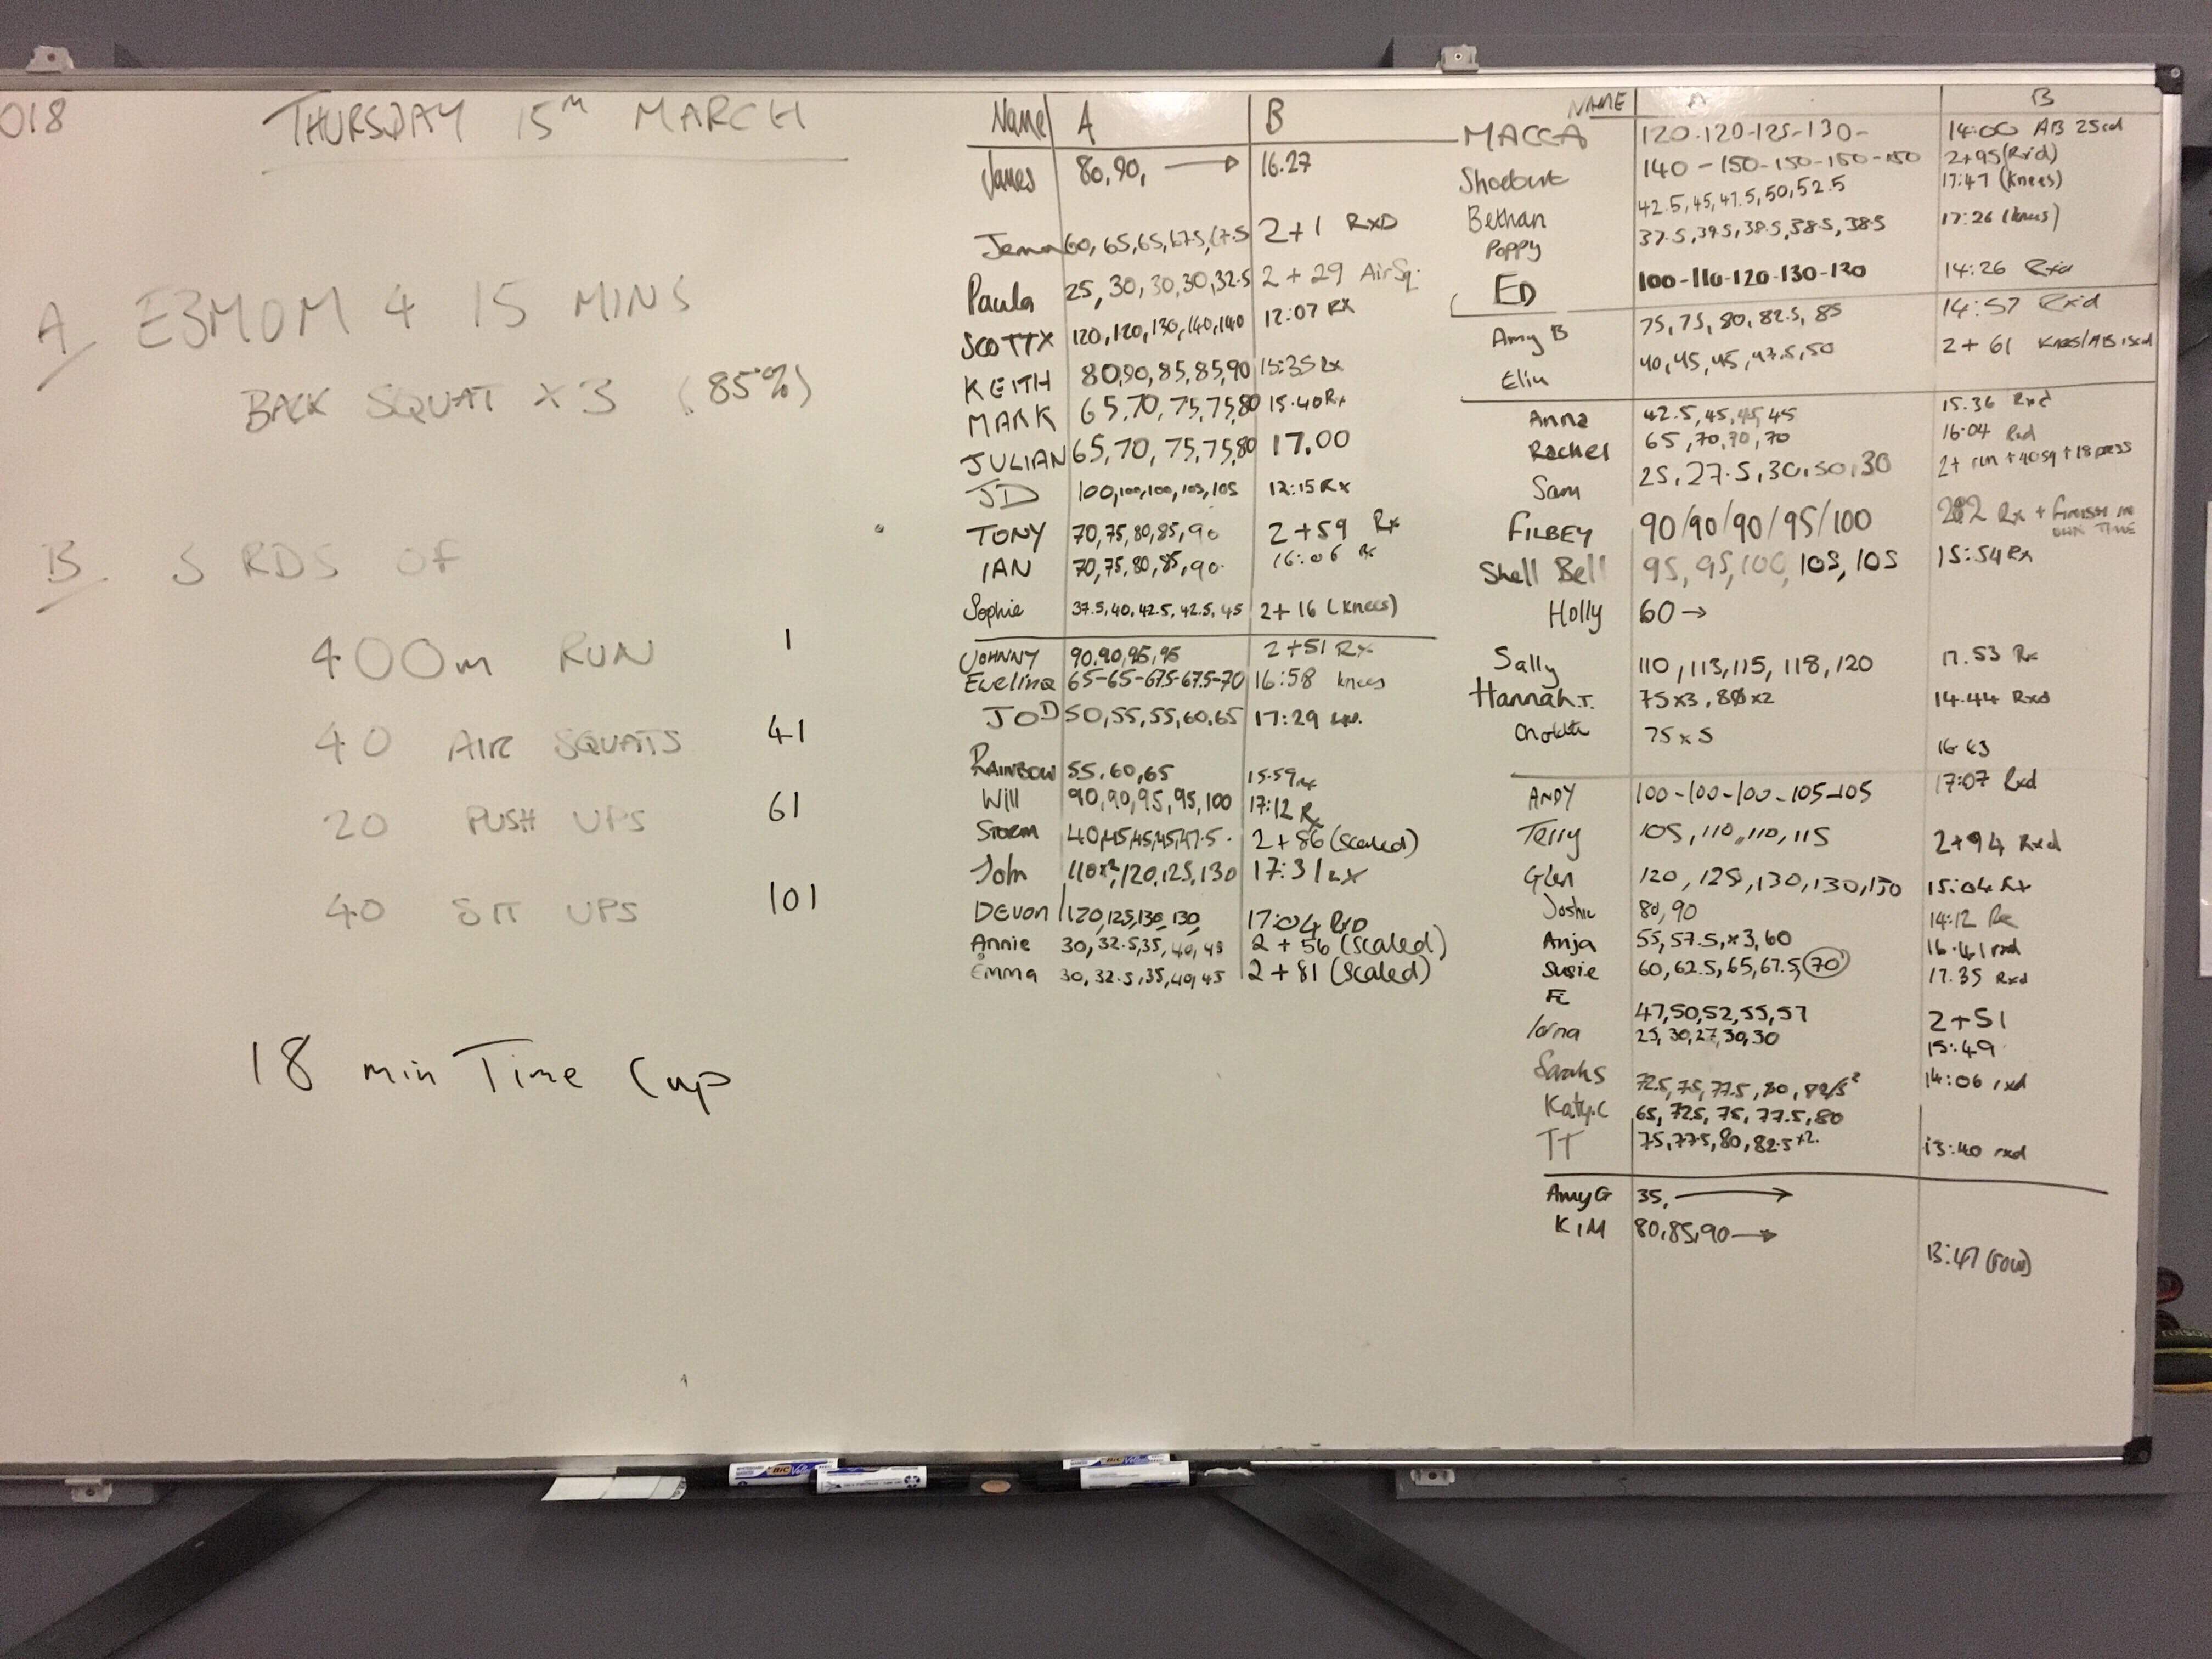 018
THURSDAY 15TH MARCH
A/ E3MOM 4 15 MINS
BACK SQUAT x 3 (85%)
B. 3 RDS OF
400m RUN 1
40 AIR SQUATS 41
20 PUSH UPS 61
40 SIT UPS 101
18 min Time Cap
Name A B
James 80, 90, → 16.27
Jemma 60, 65, 65, 67.5, 67.5 2+1 RXD
Paula 25, 30, 30, 30, 32.5 2 + 29 AirSq.
SCOTTX 120, 120, 130, 140, 140 12:07 RX
KEITH 80, 90, 85, 85, 90 15:35 Rx
MARK 65, 70, 75, 75, 80 15.40 Rx
JULIAN 65, 70, 75, 75, 80 17.00
JD 100, 100, 100, 105, 105 12:15 Rx
TONY 70, 75, 80, 85, 90 2 + 59 Rx
IAN 70, 75, 80, 85, 90. 16:06 Rx
Sophie 37.5, 40, 42.5, 42.5, 45 2+ 16 (knees)
JOHNNY 90, 90, 95, 95 2 +51 Rx
Evelina 65-65-67.5-67.5-70 16:58 knees
JOD 50, 55, 55, 60, 65 17:29
RAINBOW 55, 60, 65 15.59 Rx
Will 90, 90, 95, 95, 100 17:12 Rx
Storm 40, 45, 45, 45, 47.5. 2 + 86 (scaled)
John 110x2, 120, 125, 130 17:31 RX
DEVON 120, 125, 130, 130, 17:04 RXD
Annie 30, 32.5, 35, 40, 45 2 + 56 (scaled)
Emma 30, 32.5, 35, 40, 45 2 + 81 (scaled)
NAME A B
MACCA 120-120-125-130- 14:00 AB 25cal
Shoebut 140 - 150-150-150-150 2+95 (Rx'd)
Bethan 42.5, 45, 47.5, 50, 52.5 17:47 (knees)
POPPY 37.5, 39.5, 38.5, 38.5, 38.5 17:26 (knees)
ED 100-110-120-130-130 14:26 Rxd
Amy B 75, 75, 80, 82.5, 85 14:57 Rxd
Elin 40, 45, 45, 47.5, 50 2 + 61 knees/AB 15cal
Anna 42.5, 45, 45, 45 15.36 Rxd
Rachel 65, 70, 70, 70 16.04 Rxd
Sam 25, 27.5, 30, 30, 30 2+ run + 40sq + 18 press
FILBEY 90/90/90/95/100 Rx + finish in own time
Shell Bell 95, 95, 100, 105, 105 15:54 Rx
Holly 60→
Sally 110, 113, 115, 118, 120 17.53 Rx
Hannah T. 75x3, 80x2 14.44 Rxd
75 x 5 16 43
ANDY 100-100-100-105-105 17:07 Rxd
Terry 105, 110, 110, 115 2+94 Rxd
Glen 120, 125, 130, 130, 130 15:04 Rx
Joshu 80, 90 14:12 Rx
Anja 55, 57.5, x3, 60 16.41 rxd
Susie 60, 62.5, 65, 67.5, 70 17.35 Rxd
Fi 47, 50, 52, 55, 57 2+51
lorna 25, 30, 27, 30, 30 15:49
Sarah S 72.5, 75, 77.5, 80, 82.5² 14:06 rxd
Katy.C 65, 72.5, 75, 77.5, 80
TT 75, 77.5, 80, 82.5 x2. 13:40 rxd
Amy G 35, →
KIM 80, 85, 90→
13:47 (row)
BIC
BIC